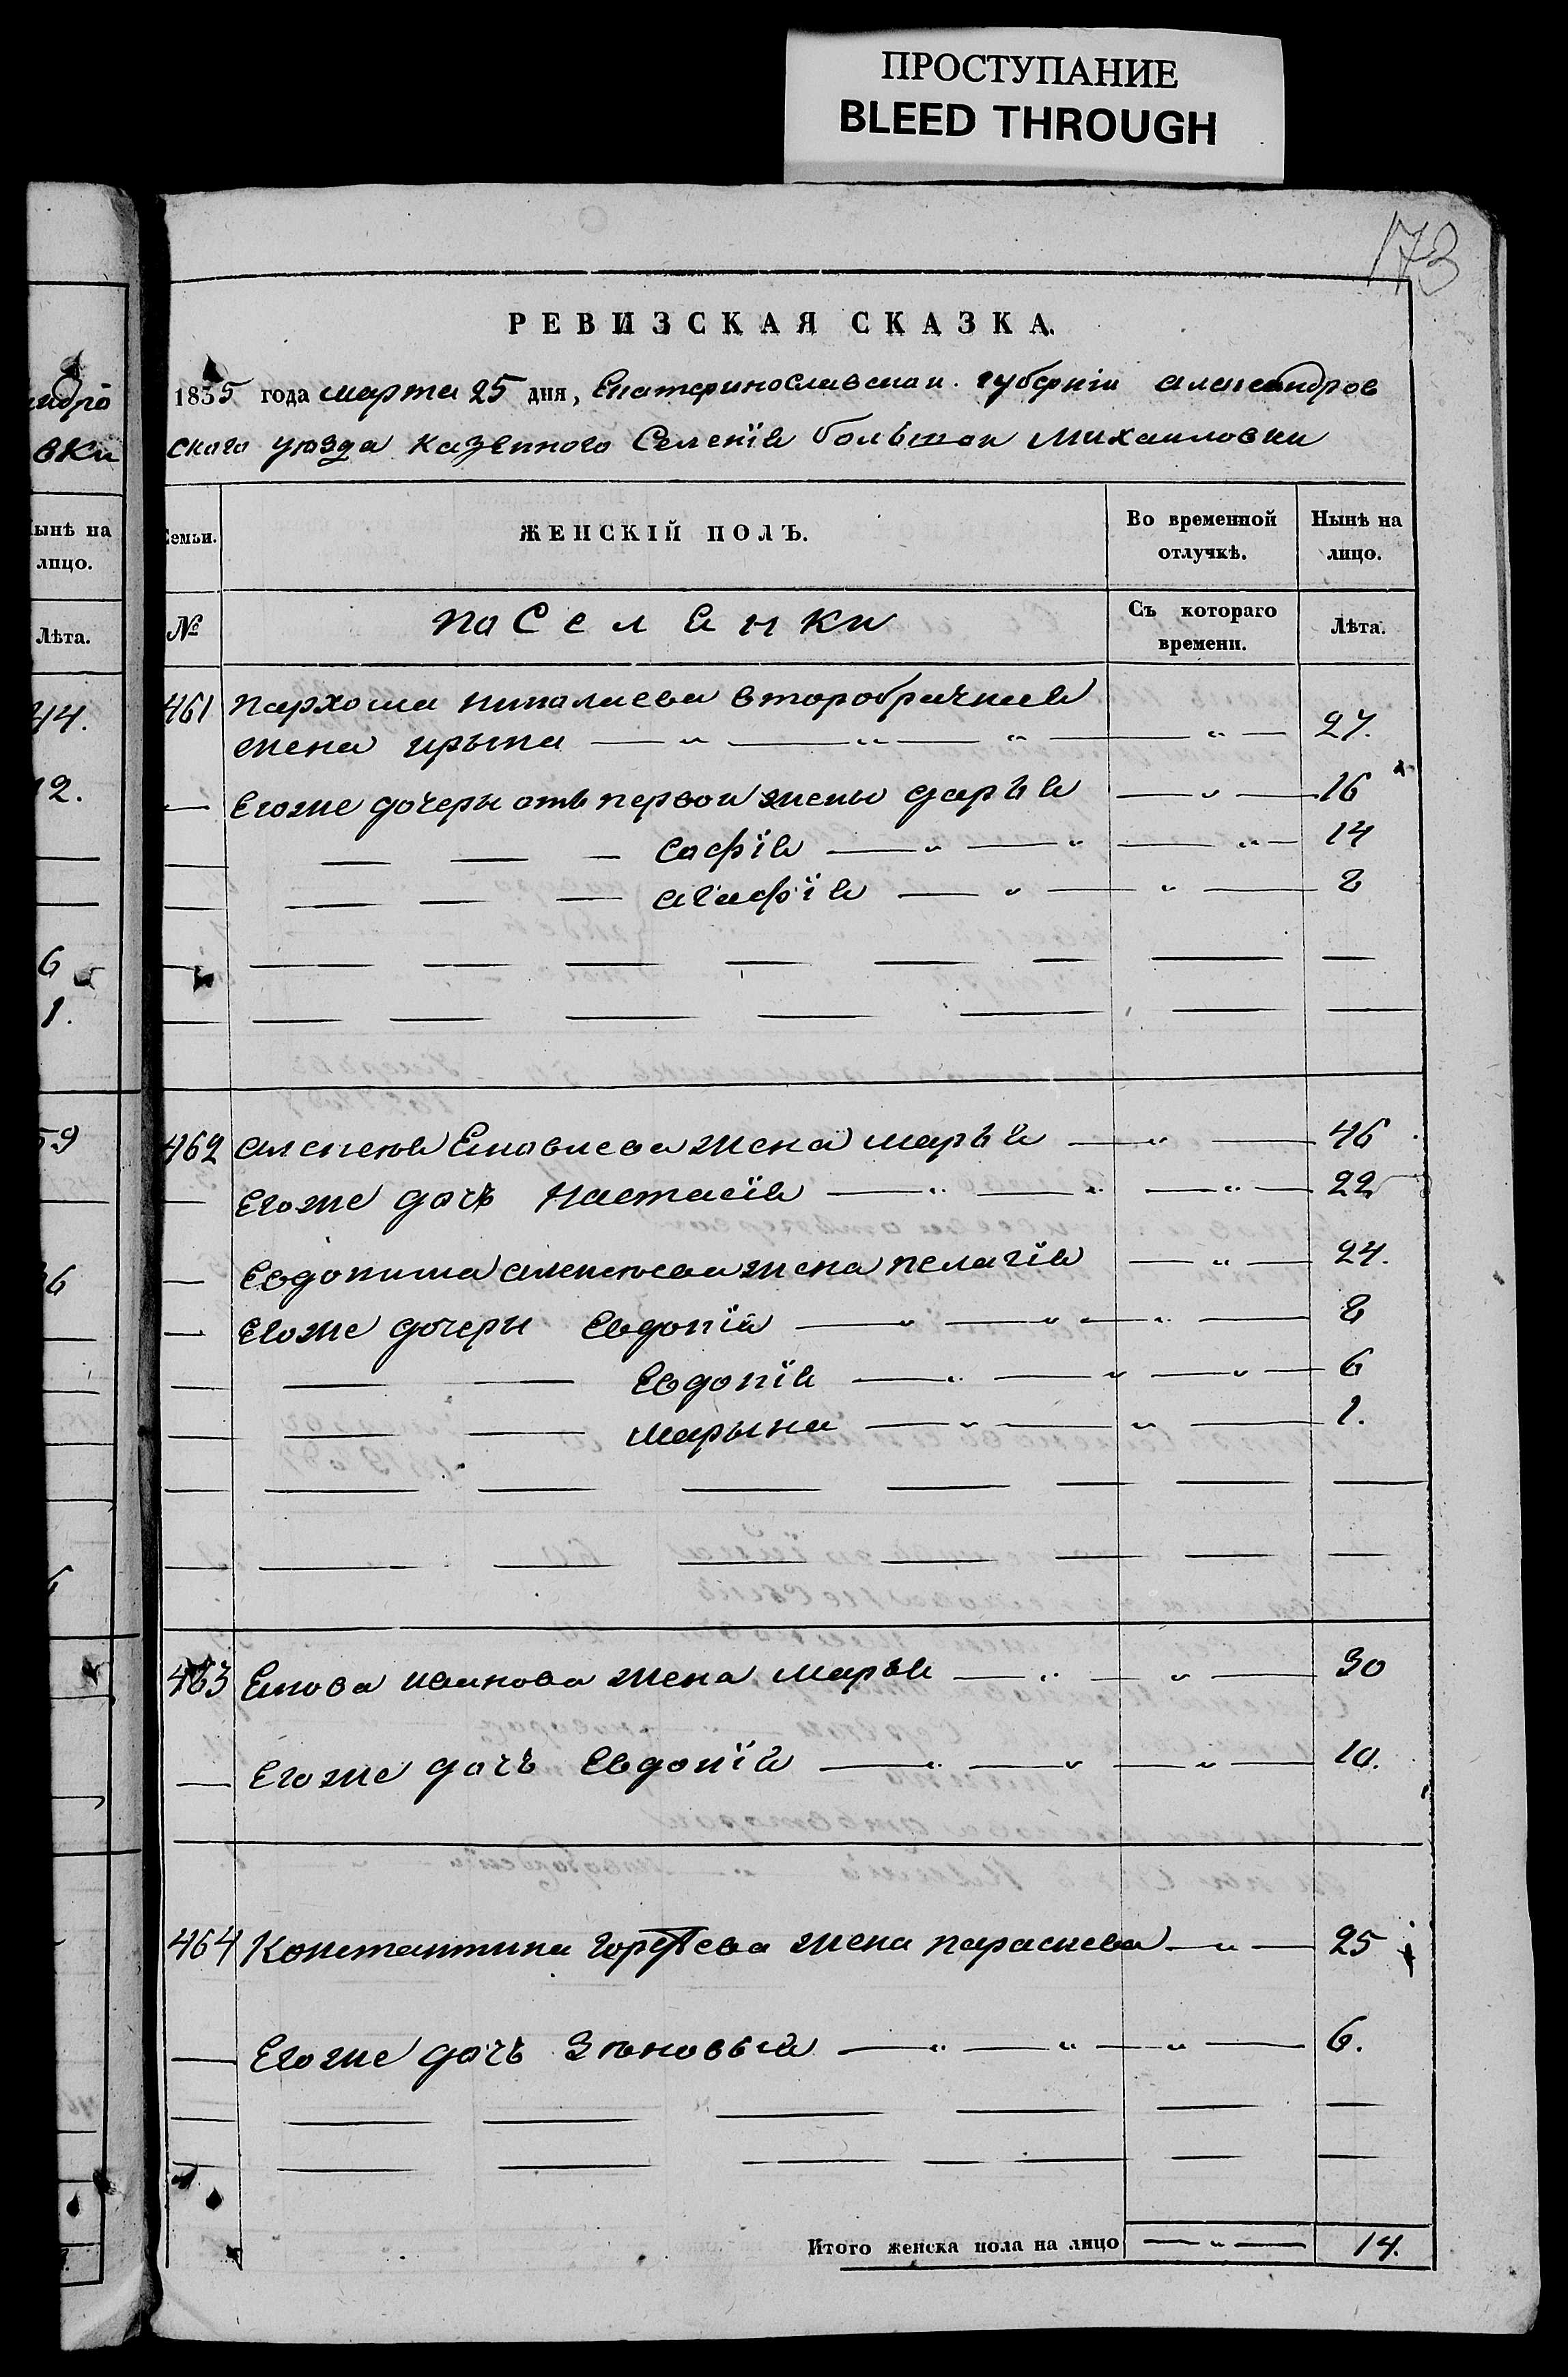 ПРОСТУПАНИЕ
BLEED THROUGH
173
РЕВИЗСКАЯ СКАЗКА.
1835 года марта 25 дня, Екатеринославской губерніи александров
ского уѣзда казенного Селенія большои михаиловки
ындро
вки
Нынѣ на
лицо.
Лѣта.
44.
12.
6
1.
59
Семьи.
ЖЕНСКІЙ ПОЛЪ.
Во временной
отлучкѣ.
Нынѣ на
лицо.
№
поселянки
Съ котораго
времени.
Лѣта.
461 пархома николаева второбрачная
жена ирына — „ — „ — „ — „ — 27.
— Егоже дочери отъ первои жены дарья — „ — 16
— — — — Софія — „ — „ — „ — 14
— — — — агафія — „ — „ — 8
462 алексея Еновиева жена марья — „ — 46
— Егоже дочь Настасія — „ — „ — „ — 22
— Евдокима алексеева жена пелагія — „ — 24.
— Егоже дочери Евдокія — „ — „ — „ — 8
— — — Евдокія — „ — „ — „ — 6
— — — марына — „ — „ — 1.
463 Енова иванова жена марья — „ — „ — 30
— Егоже дочь Евдокія — „ — „ — „ — 10.
464 Константина Гордеева жена параскева — „ — 25
— Егоже дочь Зѣновья — „ — „ — „ — 6.
Итого женска пола на лицо — „ — 14.